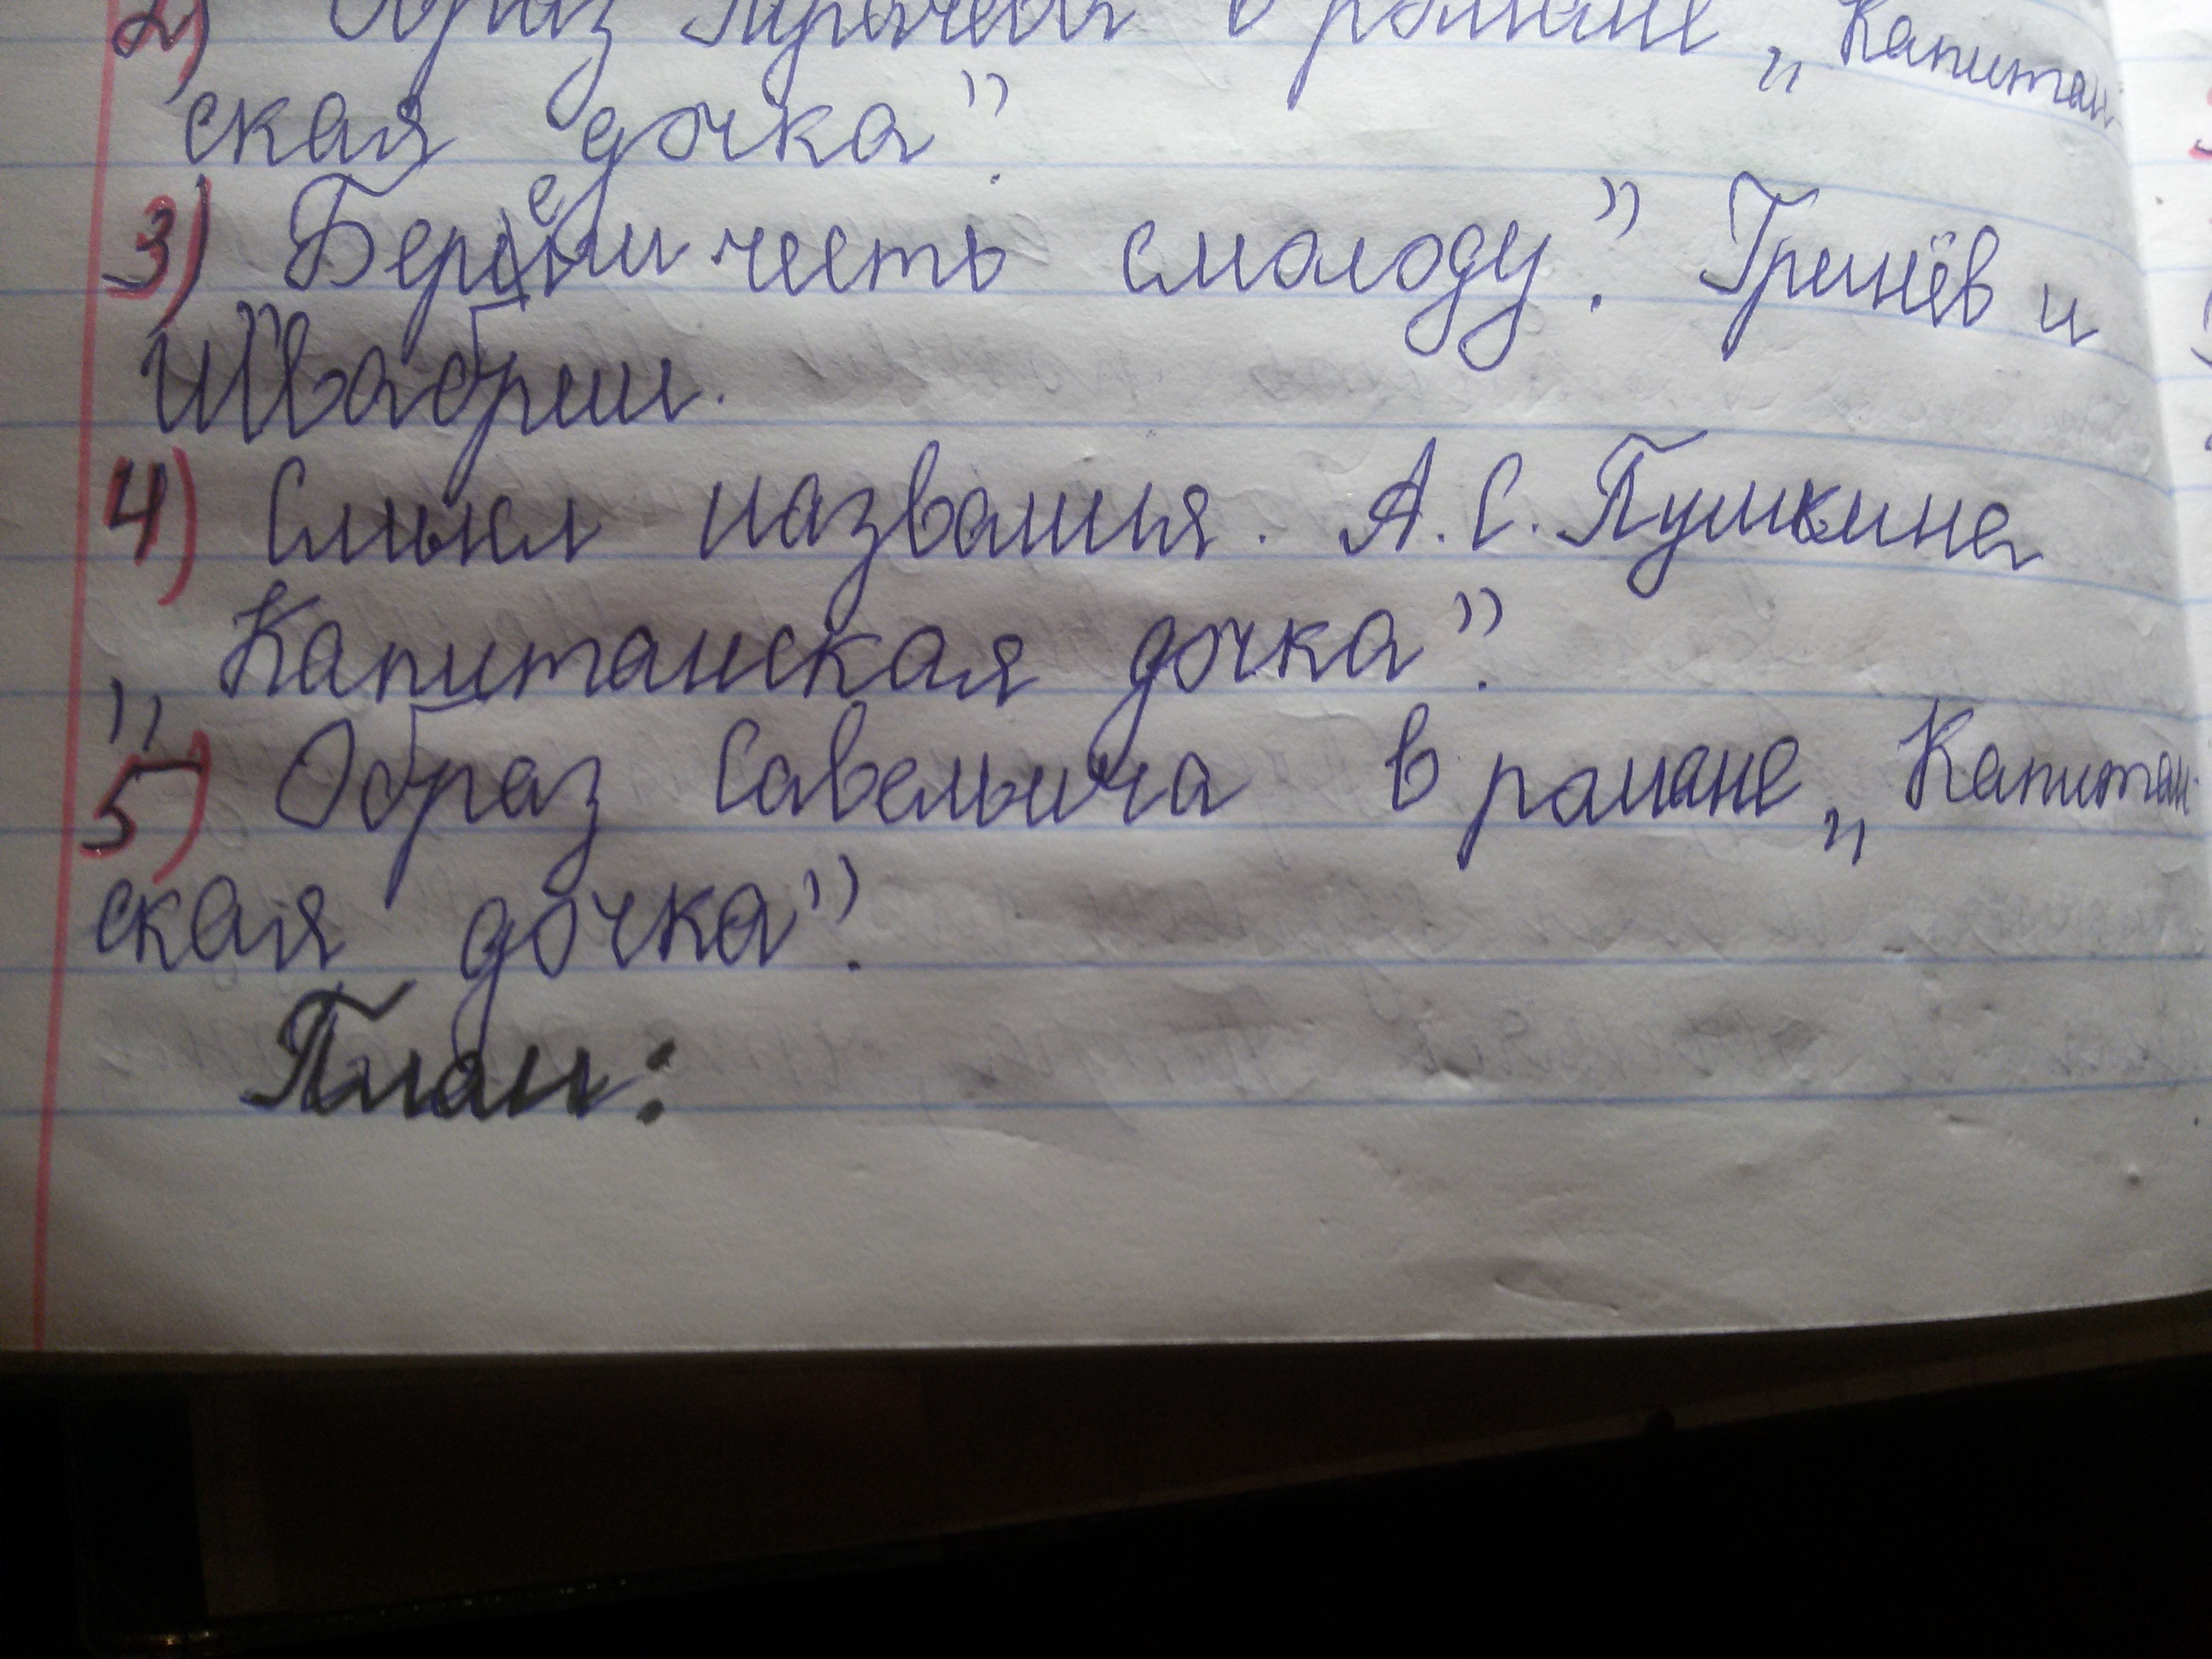 2) Образ Пугачёва в романе „Капитан
ская дочка".
3) Береги честь смолоду". Гринёв и
Швабрин.
4) Смысл названия. А.С. Пушкина
„Капитанская дочка".
5) Образ Савельича в романе „Капитан-
ская дочка".
План: